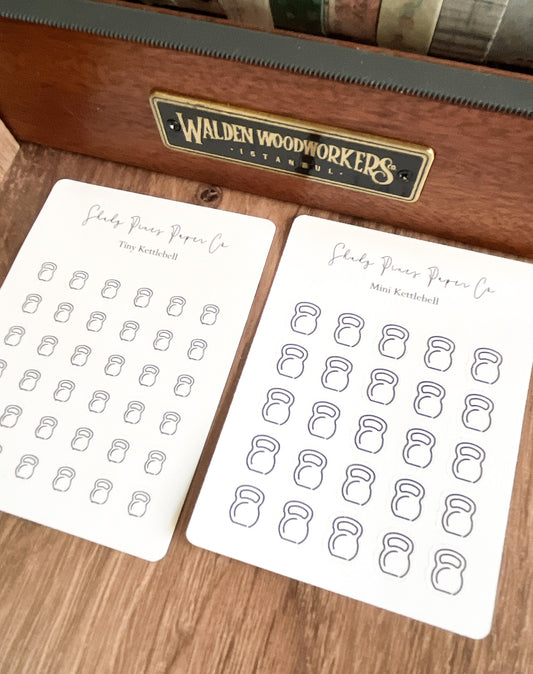 WALDEN WOODWORKERS Co
· ISTANBUL ·
Shady Pines Paper Co
Tiny Kettlebell
Shady Pines Paper Co
Mini Kettlebell